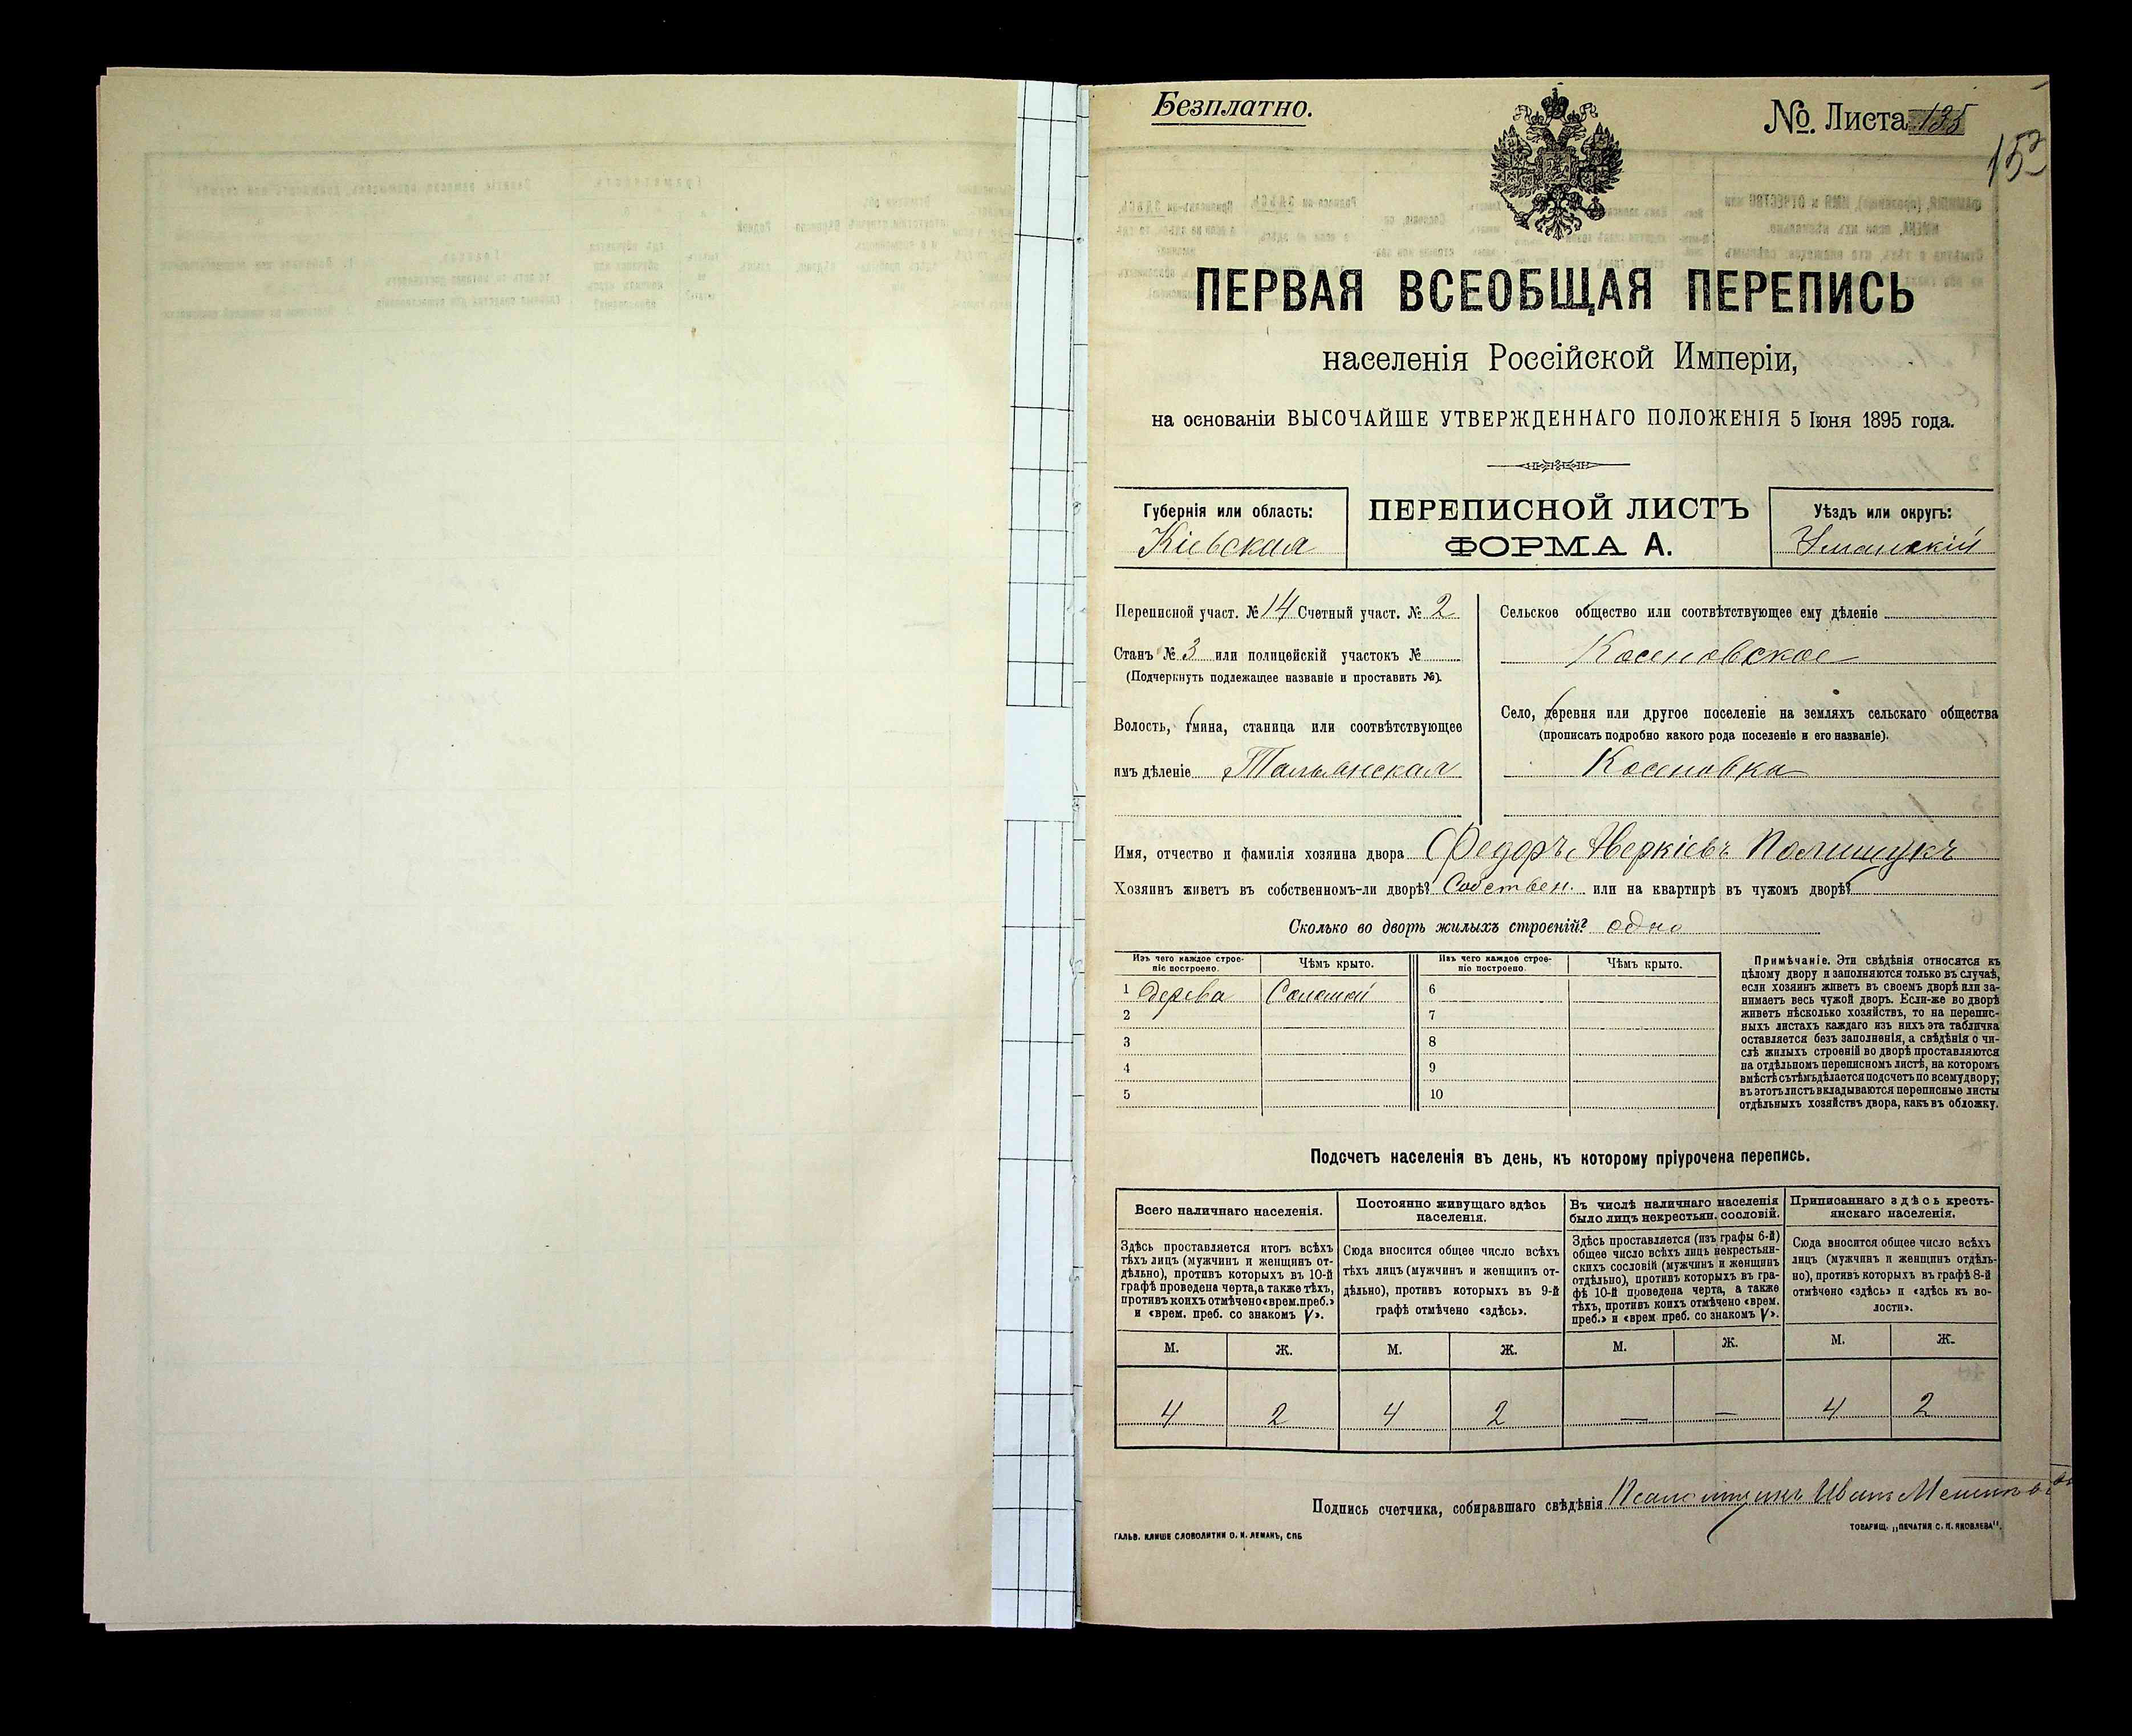 Безплатно.
№ Листа 135
152
ПЕРВАЯ ВСЕОБЩАЯ ПЕРЕПИСЬ
населенія Россійской Имперіи,
на основаніи ВЫСОЧАЙШЕ УТВЕРЖДЕННАГО ПОЛОЖЕНІЯ 5 Іюня 1895 года.
Губернія или область:
Кіевская
ПЕРЕПИСНОЙ ЛИСТЪ
ФОРМА А.
Уѣздъ или округъ:
Уманскій
Переписной участ. № 14 Счетный участ. № 2
Станъ № 3 или полицейскій участокъ №
(Подчеркнуть подлежащее названіе и проставить №).
Волость, гмина, станица или соотвѣтствующее
имъ дѣленіе Тальянская
Сельское общество или соотвѣтствующее ему дѣленіе
Косеновское
Село, деревня или другое поселеніе на земляхъ сельскаго общества
(прописать подробно какого рода поселеніе и его названіе).
Косеновка
Имя, отчество и фамилія хозяина двора Федоръ Аверкіевъ Полищукъ
Хозяинъ живетъ въ собственномъ-ли дворѣ? Собствен. или на квартирѣ въ чужомъ дворѣ?
Сколько во дворѣ жилыхъ строеній? одно
Изъ чего каждое строе-
ніе построено.
Чѣмъ крыто.
Изъ чего каждое строе-
ніе построено.
Чѣмъ крыто.
1 Дерева Соломой 6
2 7
3 8
4 9
5 10
Примѣчаніе. Эти свѣдѣнія относятся къ
цѣлому двору и заполняются только въ случаѣ,
если хозяинъ живетъ въ своемъ дворѣ или за-
нимаетъ весь чужой дворъ. Если-же во дворѣ
живетъ нѣсколько хозяйствъ, то на перепис-
ныхъ листахъ каждаго изъ нихъ эта табличка
оставляется безъ заполненія, а свѣдѣнія о чи-
слѣ жилыхъ строеній во дворѣ проставляются
на отдѣльномъ переписномъ листѣ, на которомъ
вмѣстѣ съ тѣмъ дѣлается подсчетъ по всему двору;
въ этотъ листъ вкладываются переписные листы
отдѣльныхъ хозяйствъ двора, какъ въ обложку.
Подсчетъ населенія въ день, къ которому пріурочена перепись.
Всего наличнаго населенія.
Здѣсь проставляется итогъ всѣхъ
тѣхъ лицъ (мужчинъ и женщинъ от-
дѣльно), противъ которыхъ въ 10-й
графѣ проведена черта, а также тѣхъ,
противъ коихъ отмѣчено «врем. преб.»
и «врем. преб. со знакомъ V».
Постоянно живущаго здѣсь
населенія.
Сюда вносится общее число всѣхъ
тѣхъ лицъ (мужчинъ и женщинъ от-
дѣльно), противъ которыхъ въ 9-й
графѣ отмѣчено «здѣсь».
Въ числѣ наличнаго населенія
было лицъ некрестьян. сословій.
Здѣсь проставляется (изъ графы 6-й)
общее число всѣхъ лицъ некрестьян-
скихъ сословій (мужчинъ и женщинъ
отдѣльно), противъ которыхъ въ гра-
фѣ 10-й проведена черта, а также
тѣхъ, противъ коихъ отмѣчено «врем.
преб.» и «врем преб. со знакомъ V».
Приписаннаго здѣсь кресть-
янскаго населенія.
Сюда вносится общее число всѣхъ
лицъ (мужчинъ и женщинъ отдѣль-
но), противъ которыхъ въ графѣ 8-й
отмѣчено «здѣсь» и «здѣсь къ во-
лости».
М. Ж. М. Ж. М. Ж. М. Ж.
4 2 4 2 — — 4 2
Подпись счетчика, собиравшаго свѣдѣнія Псаломщикъ Иванъ
ГАЛЬВ. КЛИШЕ СЛОВОЛИТНИ О. И. ЛЕМАНЪ, СПБ
ТОВАРИЩ. „ПЕЧАТНЯ С. П. ЯКОВЛЕВА".